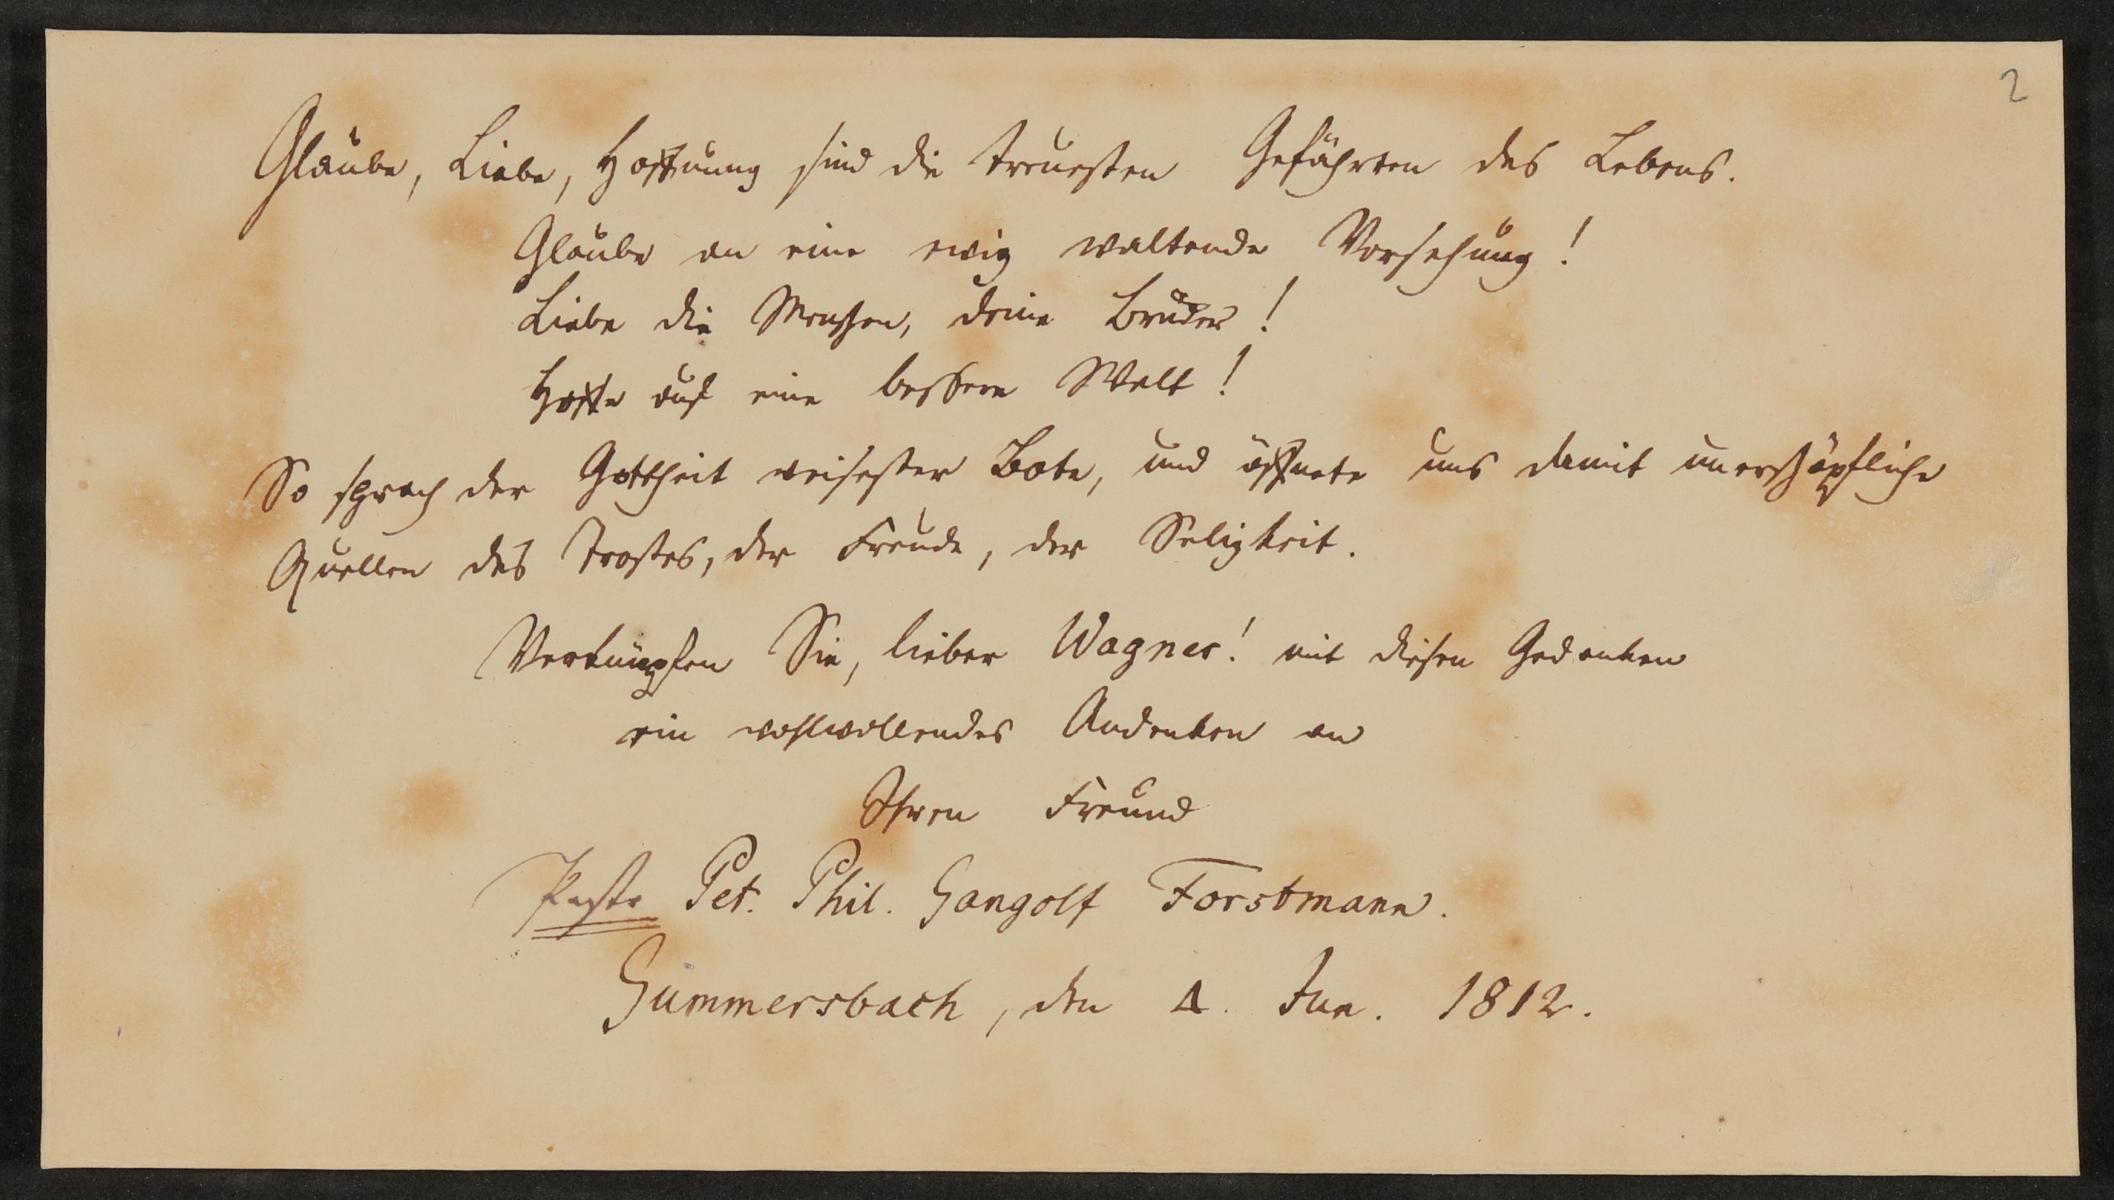 2
Glaube, Liebe, Hoffnung sind die treuesten Gefährten des Lebens.
Glaube an eine ewig waltende Vorsehung!
Liebe die Menschen, deine Brüder!
Hoffe auf eine bessere Welt!
So sprach der Gottheit weisester Bote, und öffnete uns damit unerschöpfliche
Quellen des Trostes, der Freude, der Seligkeit.
Verknüpfen Sie, lieber Wagner! mit diesen Gedanken
ein wohlwollendes Andenken an
Ihren Freund
Pet. Phil. Gangolf Forstmann.
Gummersbach, den 4. Jun. 1812.